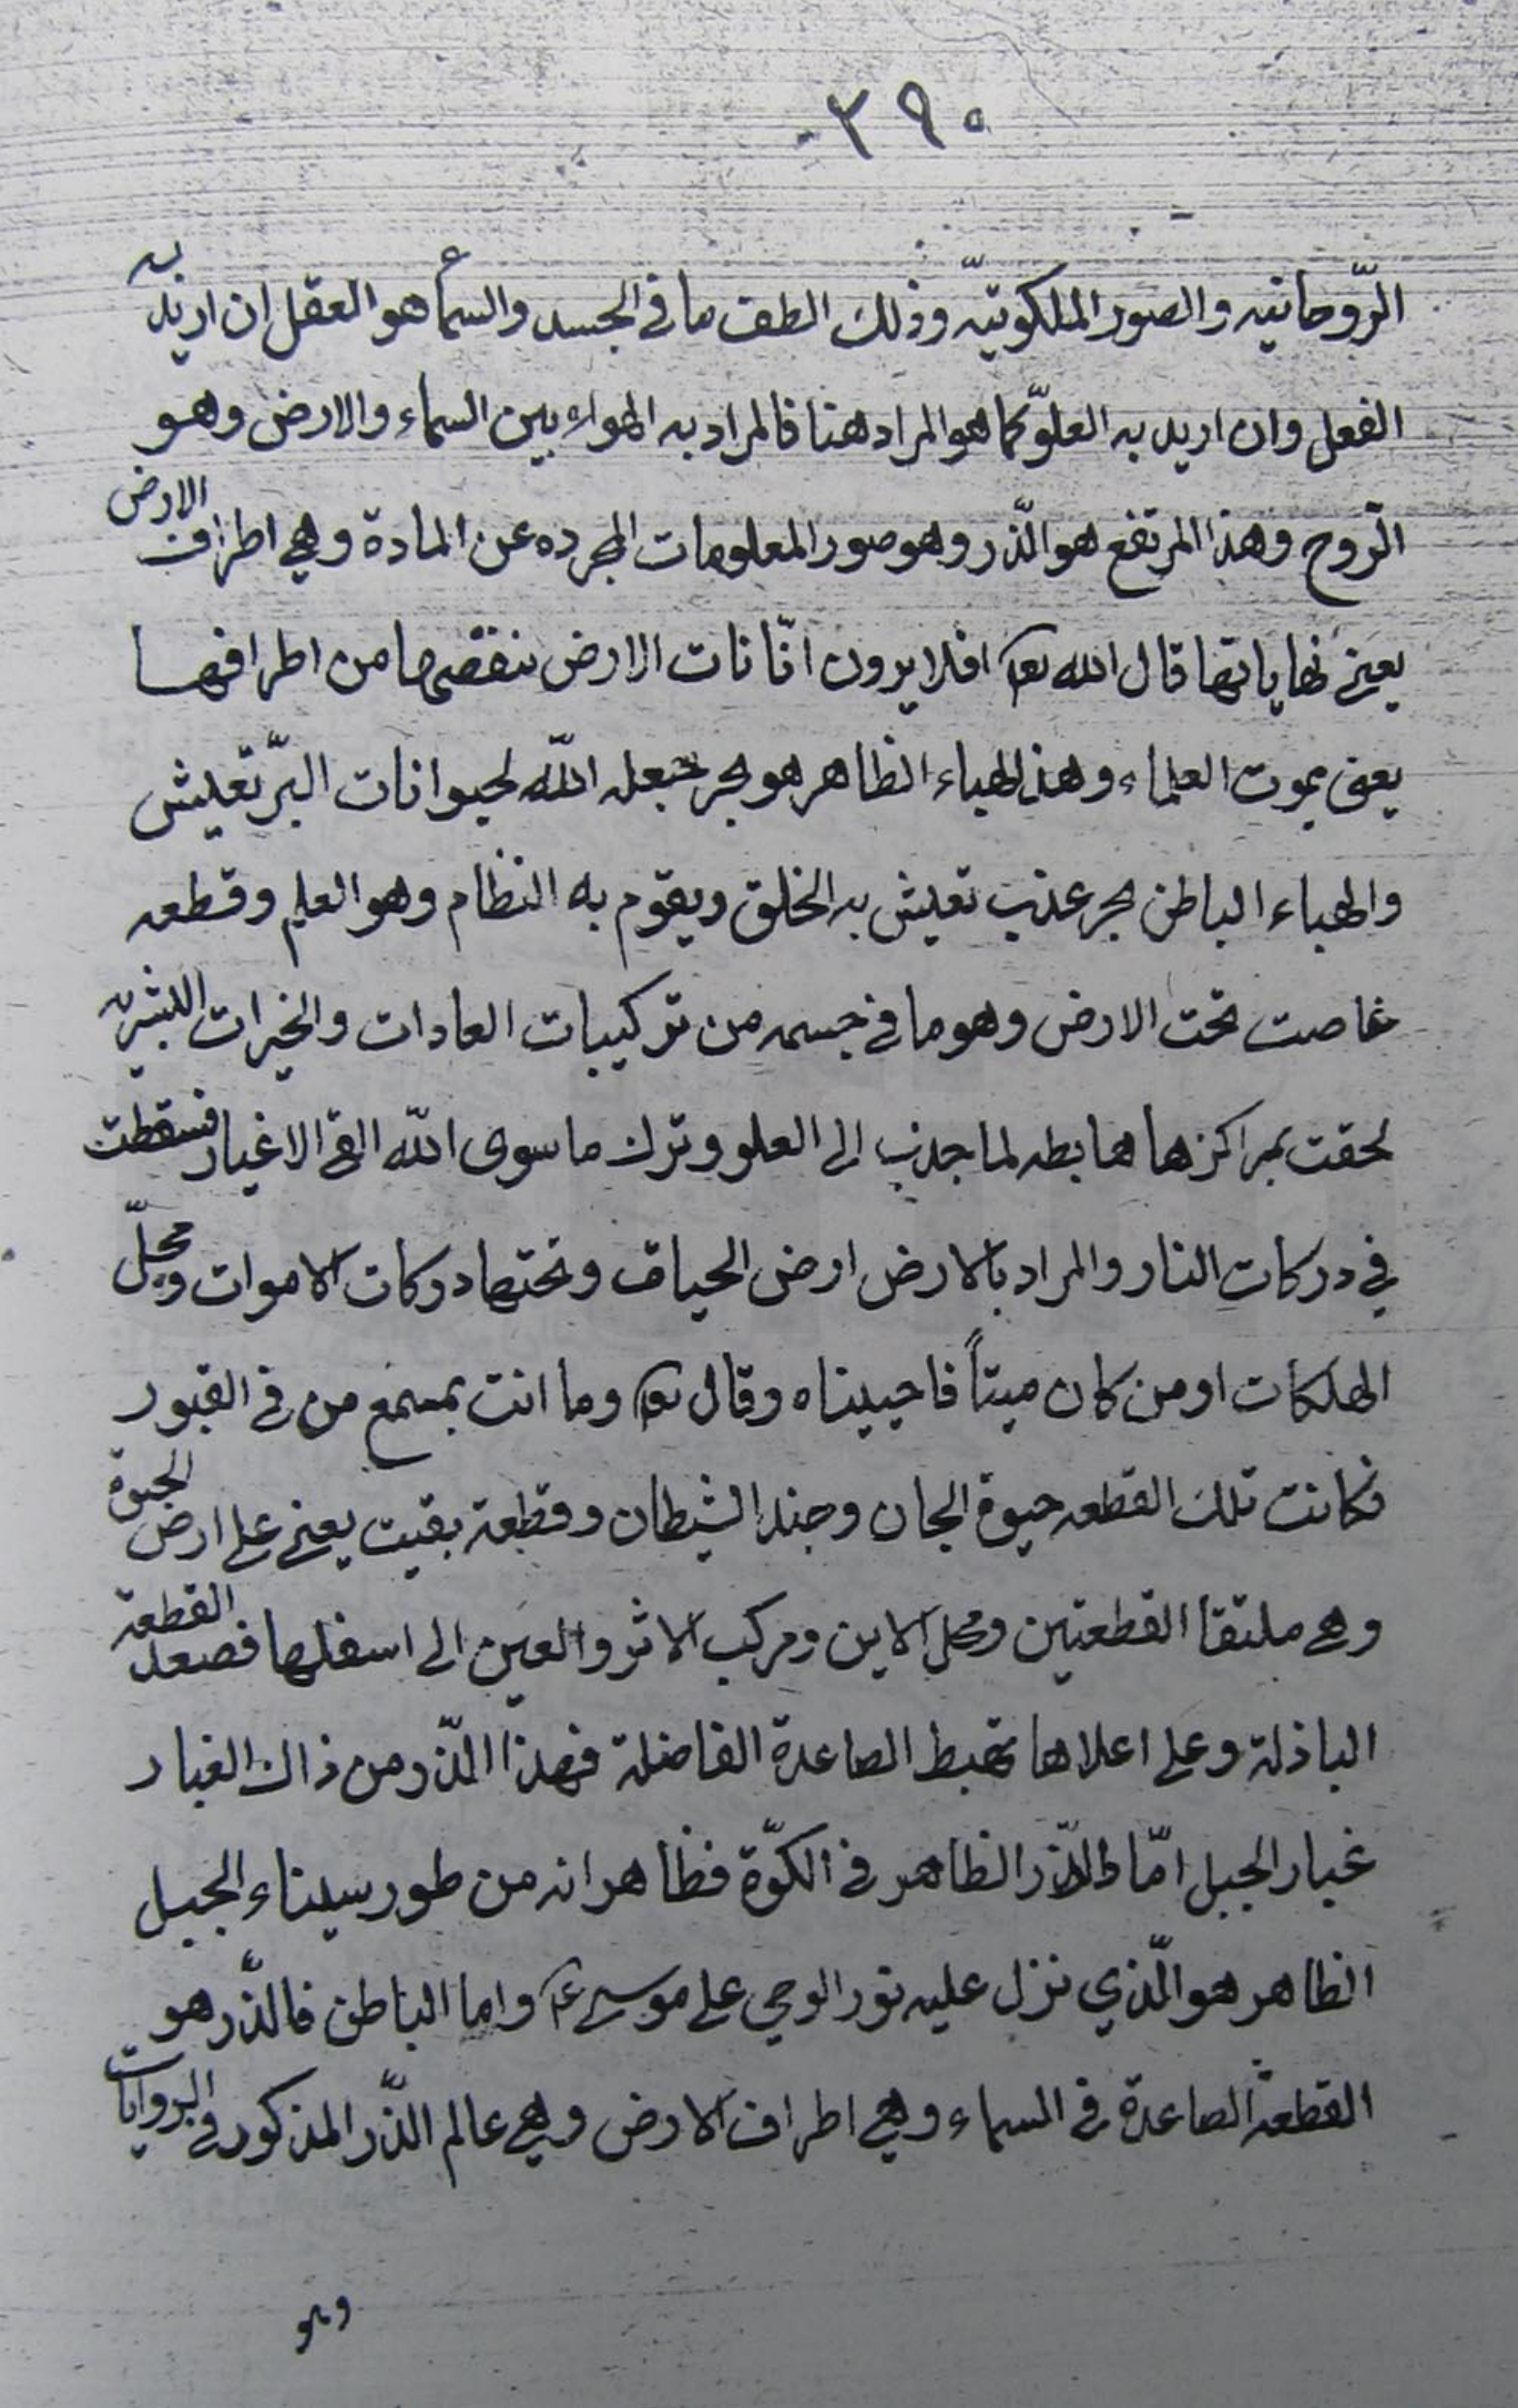 ٣٩٠
الرّوحانيه والصور الملكوتيّه وذلك الطف ما في الجسد والسمأ هو العقل ان اريد به
الفعل وان اريد به العلوّ كما هو المراد هنا فالمراد به الهواء بين السماء والارض وهو
الرّوح وهذا المرتفع هو الذّر وهو صور المعلومات المجرده عن المادة وهي اطراف الارض
يعني نهاياتها قال الله تعا افلا يرون انّا نات الارض ننقصها من اطرافها
يعنى بموت العلماء وهذا الهباء الظاهر هو بحر جعله اللّه لحيوانات البرّ تعيش
والهباء الباطن بحر عذب تعيش به الخلق ويقوم به النظام وهو العلم وقطعه
غاصت تحت الارض وهو ما في جسمه من تركيبات العادات والخيرات البشريه
لحقت بمراكزها هابطه لما جذب الى العلو وترك ما سوى اللّه القى الاغيار فسقطت
في دركات النار والمراد بالارض ارض الحياة وتحتها دركات الاموات ومحلّ
الهلكات او من كان ميتاً فاحييناه وقال تعا وما انت بمسمع من في القبور
فكانت تلك القطعه حيوة الجان وجند الشيطان وقطعة بقيت يعني على ارض الحيوة
وهى ملتقا القطعتين ومحل الاين ومركب الاثر والعين الى اسفلها فصعد القطعة
الباذلة وعلى اعلاها تهبط الصاعدة الفاضلة فهذا الذّر من ذاك الغبار
غبار الجبل امّا الذّر الظاهر في الكوّة فظاهر انه من طور سيناء الجبل
الظاهر هو الّذي نزل عليه نور الوحي على موسى ع واما الباطن فالذّر هو
القطعة الصاعدة في السماء وهي اطراف الارض وهي عالم الذّر المذكور في الروايات
وهو